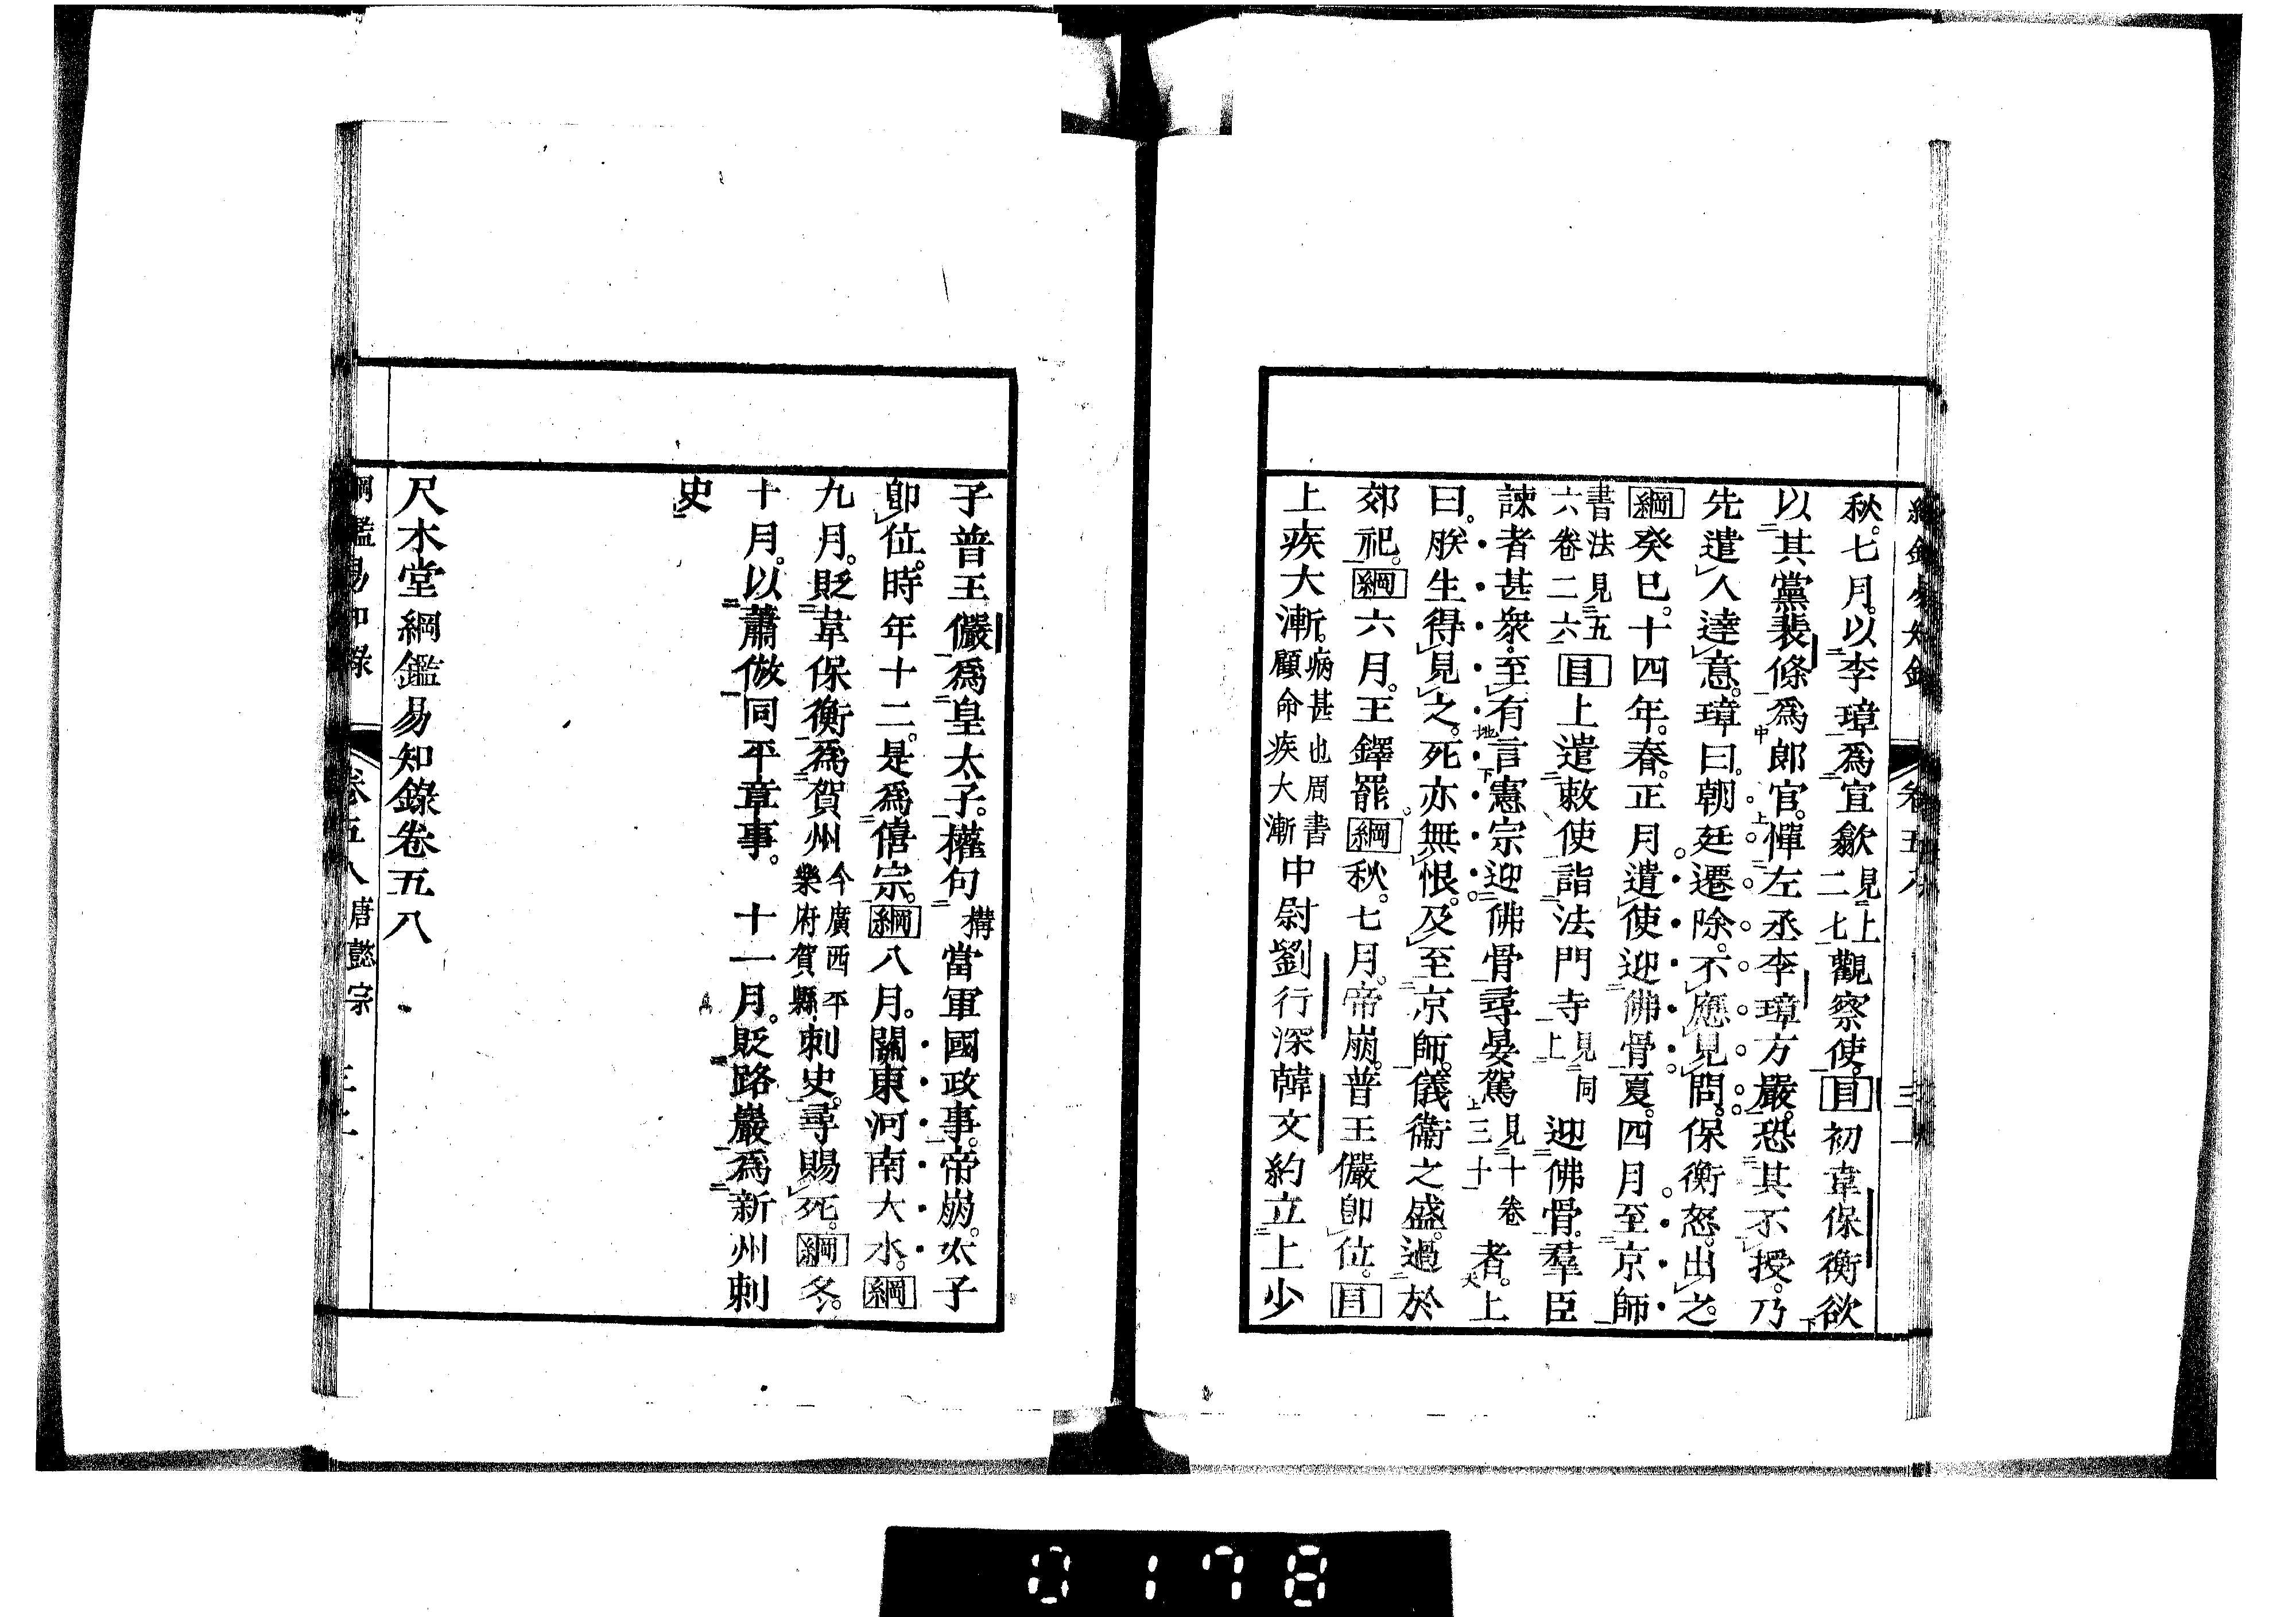 秋。七月。以李璋爲宣歙見上二七觀察使。目初韋保衡欲
以其黨裴條爲郎官。憚左丞李璋方嚴。恐其不授。乃
先遣人達意。璋曰。朝廷遷除。不應見問。保衡怒。出之。
綱癸巳。十四年。春。正月。遣使迎佛骨。夏。四月。至京師
書法見五六卷二六目上遣敕使詣法門寺見同上迎佛骨。羣臣
諫者甚衆。至有言憲宗迎佛骨尋晏駕見十卷三十者。上
曰。朕生得見之。死亦無恨。及至京師。儀衞之盛。過於
郊祀。綱六月。王鐸罷。綱秋。七月。帝崩。普王儼卽位。目
上疾大漸。病甚也周書顧命疾大漸中尉劉行深韓文約立上少
子普王儼爲皇太子。權句構當軍國政事。帝崩。太子
卽位。時年十二。是爲僖宗。綱八月。關東河南大水。綱
九月。貶韋保衡爲賀州今廣西平樂府賀縣刺史。尋賜死。綱冬。
十月。以蕭倣同平章事。 十一月。貶路巖爲新州刺
史
尺木堂綱鑑易知錄卷五八
綱鑑易知錄 卷五八 唐懿宗
0178